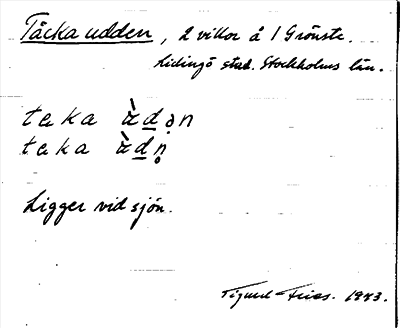 Täcka udden, 2 villor å 1 Grönsta.
Lidingö stad. Stockholms län.
taka ùdən
taka ùdṇ
Ligger vid sjön.
Sigurd Fries. 1943.